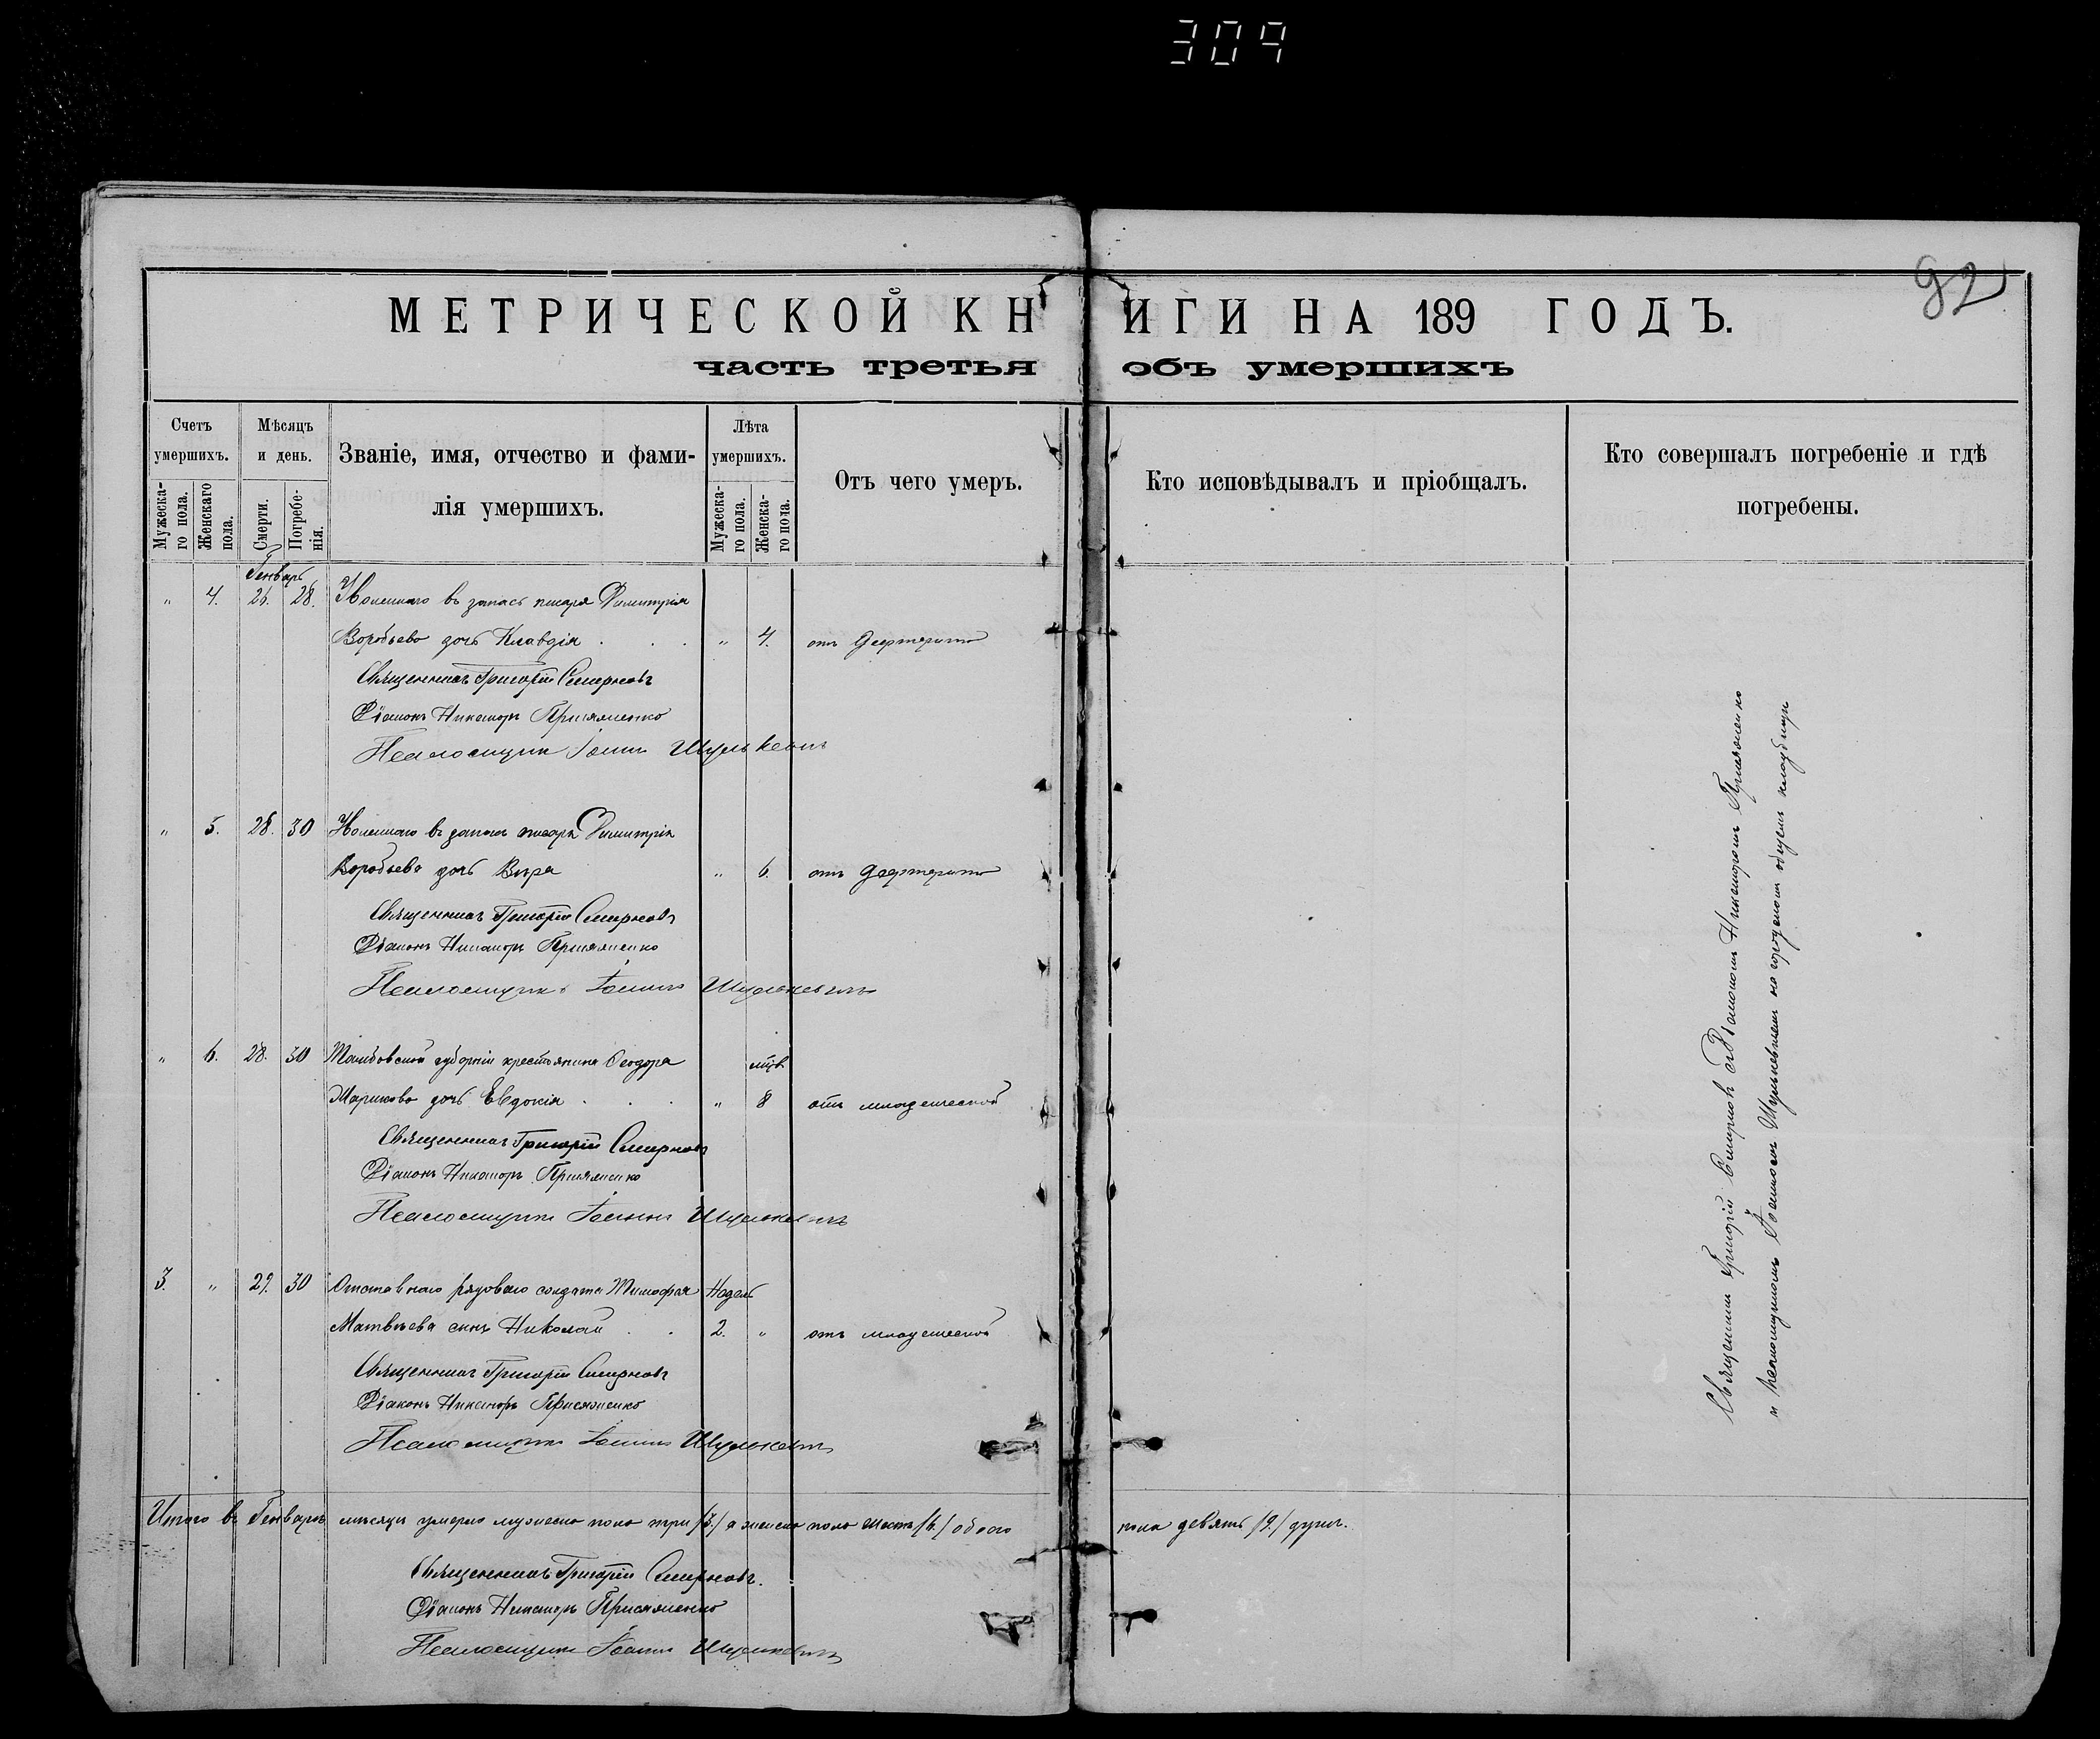 309
92
МЕТРИЧЕСКОЙ КНИГИ НА 189 ГОДЪ.
часть третья объ умершихъ
Счетъ умершихъ.
Мужескаго пола.
Женскаго пола.
Мѣсяцъ и день.
Смерти.
Погребенія.
Званіе, имя, отчество и фамилія умершихъ.
Лѣта умершихъ.
Мужескаго пола.
Женскаго пола.
Отъ чего умеръ.
Кто исповѣдывалъ и пріобщалъ.
Кто совершалъ погребеніе и гдѣ погребены.
Генварь
" 4. 26. 28. Уволеннаго въ запасъ писаря Димитрія
Воробьева дочь Клавдія . . . " 4. отъ дифтерита
Священникъ Григорій Смирновъ
Діаконъ Никаноръ Присяженко
Псаломщикъ Іоаннъ Шулькевичъ
" 5. 28. 30 Уволеннаго въ запасъ писаря Димитрія
Воробьева дочь Вѣра " 6. отъ дифтерита
Священникъ Григорій Смирновъ
Діаконъ Никаноръ Присяженко
Псаломщикъ Іоаннъ Шулькевичъ
" 6. 28. 30 Тамбовской губерніи крестьянина Ѳеодора мѣсц.
дочь Евдокія . . . " 8 отъ младенческой
Священникъ Григорій Смирновъ
Діаконъ Никаноръ Присяженко
Псаломщикъ Іоаннъ Шулькевичъ
3. " 29. 30 Отставного рядоваго солдата Тимофея Недѣль
Матвѣева сынъ Николай . . 2. " отъ младенческой
Священникъ Григорій Смирновъ
Діаконъ Никаноръ Присяженко
Псаломщикъ Іоаннъ Шулькевичъ
Итого въ Генварѣ мѣсяцѣ умерло мужеска пола три /3./ а женска пола шесть /6./ обоего пола девять /9./ душъ.
Священникъ Григорій Смирновъ.
Діаконъ Никаноръ Присяженко
Псаломщикъ Іоаннъ Шулькевичъ
Священникъ Григорій Смирновъ съ Діакономъ Никаноромъ Присяженко
и псаломщикомъ Іоанномъ Шулькевичемъ на городскомъ общемъ кладбищѣ